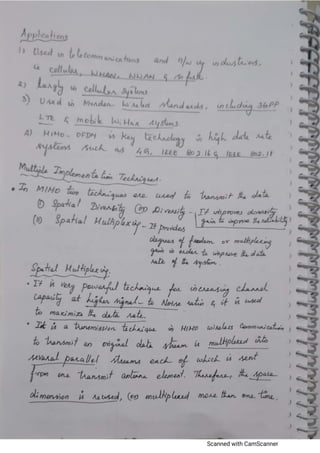 Applications
1) Used in telecommunications and n/w industries,
ie cellular, WMAN, WWAN & so far.
2) Largly in cellular systems
3) Used in Mordan wireless standards, including 3GPP
LTE & mobile WiMax systems.
4) MIMO-OFDM is key technology in high data rate
systems such as 4G, IEEE 802.16 & IEEE 802.11
Multiple Implementation Techniques.
• In MIMO two techniques are used to transmit the data
(i) Spatial Diversity (or) Diversity - IT improves diversity
gain to improve the reliability
(ii) Spatial Multiplexing - It provides
degrees of freedom or multiplexing
gain in order to improve the data
rate of the system.
Spatial Multiplexing.
• IT is very powerful technique for increasing channel
capacity at higher signal-to Noise ratio & it is used
to maximize the data rate.
• It is a transmission technique in MIMO wireless communication
to transmit an original data stream is multiplexed into
several parallel streams each of which is sent
from one transmit antenna element. Therefore, the space
dimension is reused, (or) multiplexed more than one time.
Scanned with CamScanner